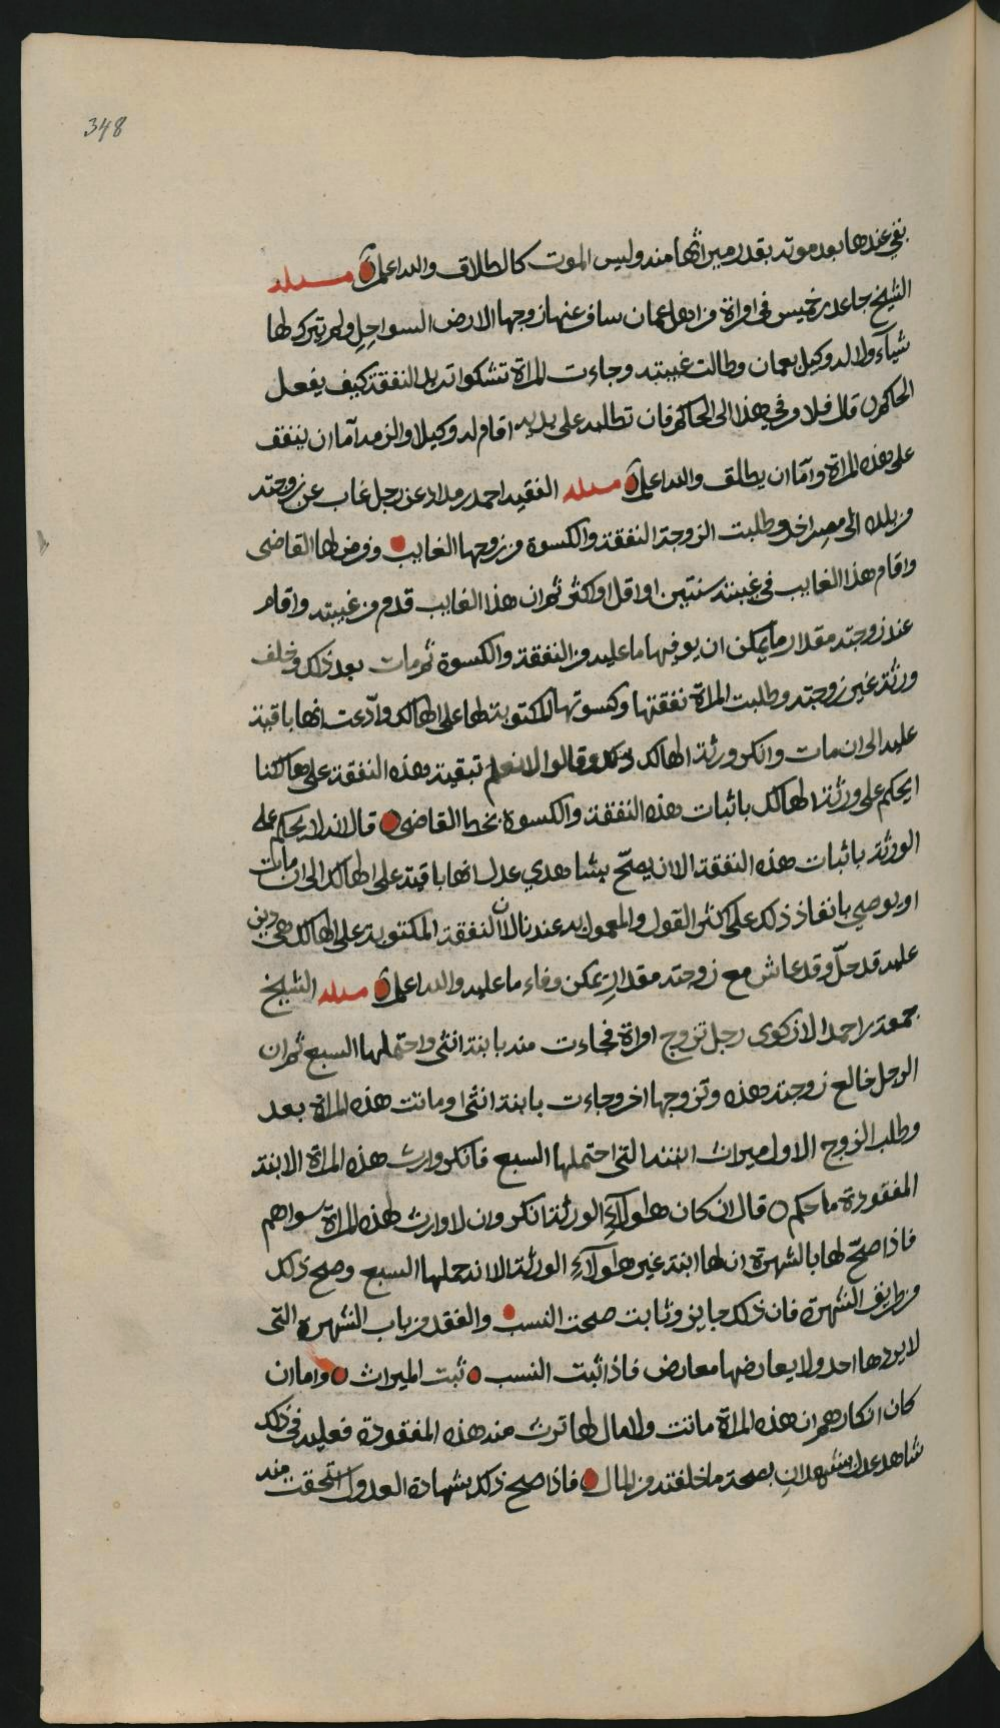 348
بقي عندها بعد موته بقدر ميراثها منه وليس الموت كالطلاق والله اعلم مسئله
الشيخ جاعد بن خميس في امراة من اهل عمان سافر عنها زوجها الارض السواحل ولم يترك لها
شيآء ولا له وكيل بعمان وطالت غيبته وجاءت المراة تشكوا تريد النفقة كيف يفعل
الحاكم قال فلا وفي هذا الى الحاكم فان تطالعه على يديه اقام له وكيلا والزمه اما ان ينفق
على هذه المراة واما ان يطلق والله اعلم مسئله الفقيه احمد بن مداد عن رجل غاب عن زوجته
من بلده الى مصر اخر وطلبت الزوجة النفقة والكسوة من زوجها الغايب وفرض لها القاضى
واقام هذا الغايب في غيبته سنتين او اقل او اكثر ثم ان هذا الغايب قدم من غيبته واقام
عند زوجته مقدار ما يمكن ان يوفيها ما عليه من النفقة والكسوة ثم مات بعد ذلك وخلف
ورثة غير زوجته وطلبت المراة نفقتها وكسوتها المكتوبة لها على الهالك وادّعت انها باقية
عليه الى ان مات وانكر ورثة الهالك ذلك وقالوا لا نعلم تبقية هذه النفقة على هالكنا
ايحكم على ورثة الهالك باثبات هذه النفقة والكسوة بخط القاضى قال انه لا يحكم على
الورثة باثبات هذه النفقة الا ان يصحّ بشاهدي عدل انها باقية على الهالك الى ان مات
او يوصي بانفاذ ذلك على اكثر القول والمعمول به عندنا لان النفقة المكتوبة على الهالك هي دين
عليه قد حلّ وقد عاش مع زوجته مقدار تمكن وفاء ما عليه والله اعلم مسئله الشيخ
جمعة بن احمد الازكوى رجل تزوج امراة فجاءت منه بابنة انثى واحتملها السبع ثم ان
الرجل خالع زوجته هذه وتزوجها اخر وجاءت بابنة انثى وماتت هذه المراة بعد
وطلب الزوج الاول ميراث ابنته التي احتملها السبع فانكر وارث هذه المراة الابنة
المفقودة ما حكم قال ان كان هاولآء الورثة انكروا ان لا وارث لهذه المراة سواهم
فاذا صحّ لها بالشهرة ان لها ابنة غير هاولآء الورثة الا انه حملها السبع وصح ذلك
من طريق الشهرة فان ذلك جايز وثابت صحت النسب والفقد من باب الشهرة التي
لا يردها احد ولا يعارضها معارض فاذا ثبت النسب ثبت الميراث واما ان
كان انكارهم ان هذه المراة ماتت ولا مال لها ترث منه هذه المفقودة فعليه في ذلك
شاهدا عدل يشهدان بصحة ما خلفته من المال فاذا صح ذلك بشهادة العدول استحقت منه